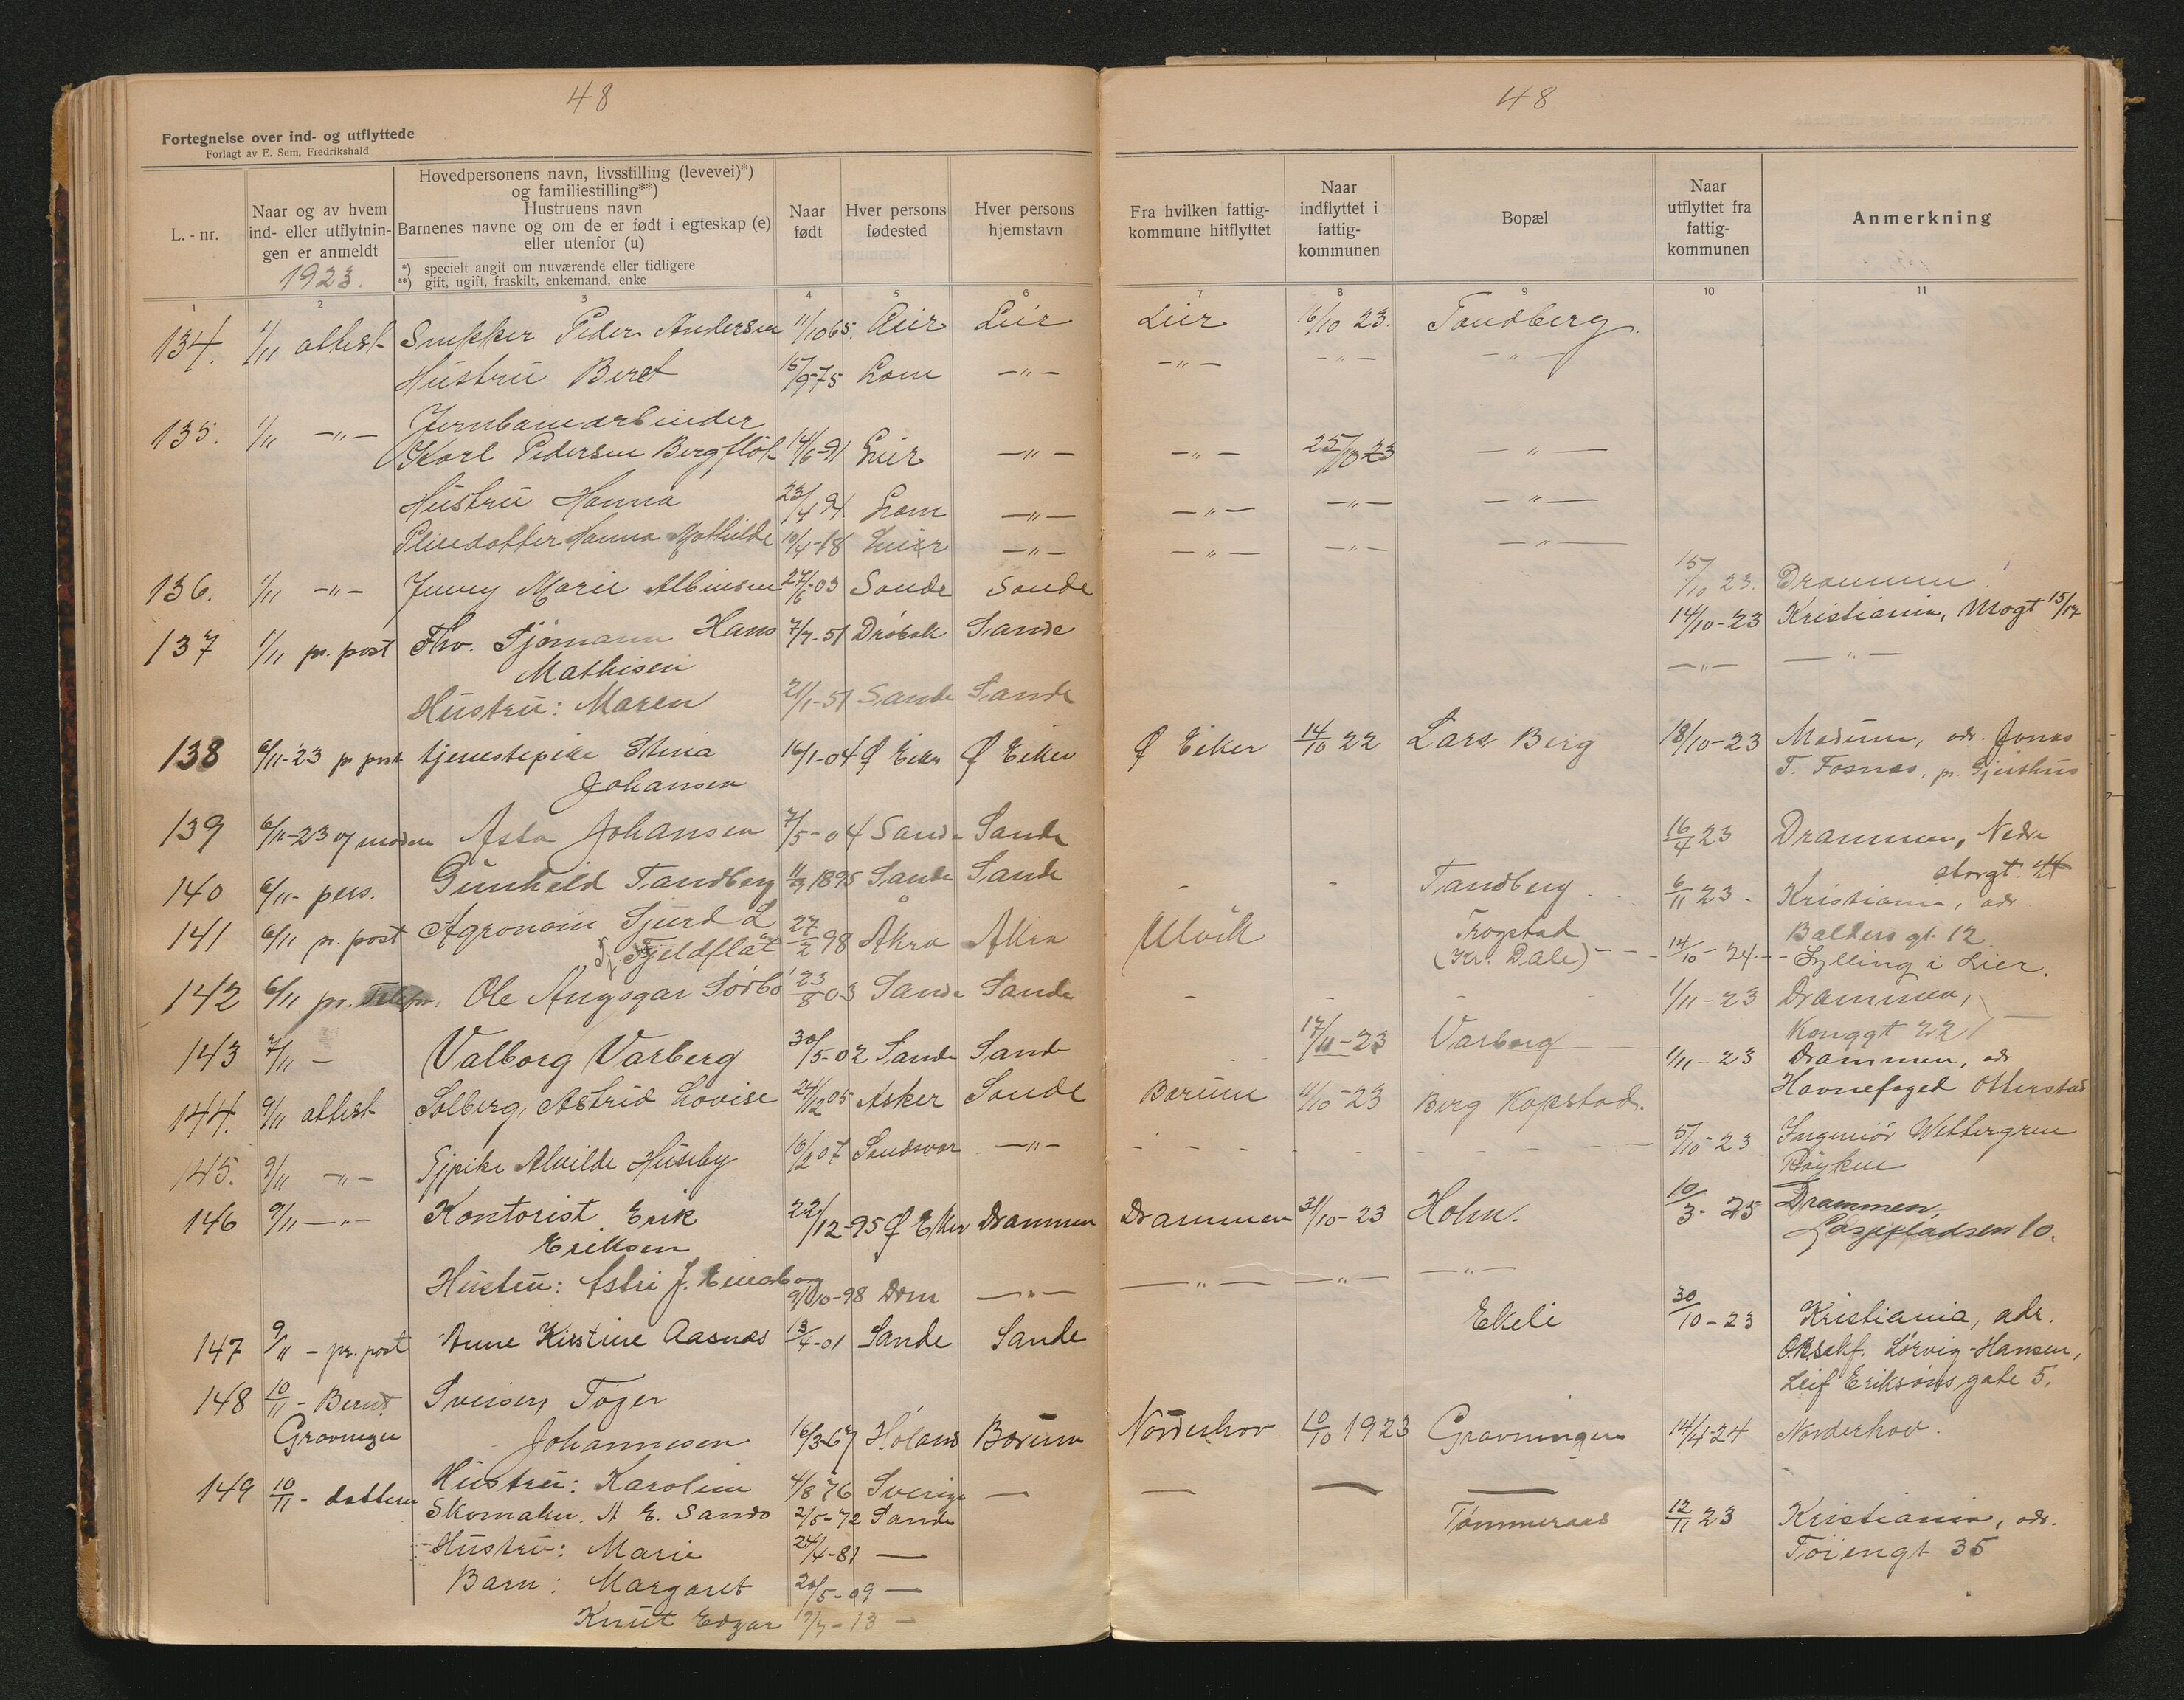 48
48
Fortegnelse over ind- og utflyttede
Forlagt av E. Sem, Fredrikshald
L. - nr.
Naar og av hvem ind- eller utflytnin- gen er anmeldt
1923.
Hovedpersonens navn, livsstilling (levevei)*)
og familiestilling**)
Hustruens navn
Barnenes navne og om de er født i egteskap (e)
eller utenfor (u)
*) specielt angit om nuværende eller tidligere
**) gift, ugift, fraskilt, enkemand, enke
Naar født
Hver persons fødested
Hver persons hjemstavn
Fra hvilken fattig- kommune hitflyttet
Naar indflyttet i fattig- kommunen
Bopæl
Naar utflyttet fra fattig- kommunen
Anmerkning
1 2 3 4 5 6 7 8 9 10 11
134. 1/11 attest Snekker Peder Andersen 11/10 65. Lier Lier Lier 16/10 23. Tandberg.
Hustru Beret 15/9-75 Lom -"- -"- -"- -"-
135. 1/11 -"- Jernbanearbeider
Karl Pedersen Bergflöt 14/6-91 Lier -"- -"- 25/10 23 -"-
Hustru Hanna 23/4 91. Lom -"- -"- -"- -"-
Pleiedatter Hanna Mathilde 10/4-18 Lier -"- -"- -"- -"-
136. 1/11 -"- Jenny Marie Albinsen 27/6-03 Sande Sande 15/10 23. Drammen
137 1/11 pr. post Fhv. Sjömann Hans 7/7-51 Dröbak Sande 14/10-23 Kristiania, Mogt 15/17
Mathisen -"- -"-
Hustru: Maren 21/1-51 Sande Sande
138 6/11-23 pr post tjenestepike Stina 16/1-04 Ø Eiker Ø Eiker Ø Eiker 14/10 22 Lars Berg 18/10-23 Modum, adr. Jonas
Johansen T. Fosnæs, pr. Gjeithus
139 6/11-23 af moden Asta Johansen 7/5-04 Sande Sande 16/4 23 Drammen, Nedre
storgt. 14
140 6/11- pers. Gunhild Tandberg 11/9 1895 Sande Sande - - Tandberg 6/11 23 - Kristiania, adr
Balders gt. 12
141 6/11 pr. post Agronom Sjurd L 27/2 98 Åkra Åkra Ulvik Trogstad
Fjeldflåt (Kr. Dale) 14/10-24 - Sylling i Lier.
142 6/11 pr. Telefon. Ole Angsgar Sörbö 23/8 03 Sande Sande - - - 1/11-23 Drammen,
Konggt 22
143 7/11 - Valborg Varberg 30/5-02 Sande Sande - 17/11-23 Varberg 1/11-23 Drammen, adr
Havnefoged Otterstad
144. 9/11 attest Solberg, Astrid Lovise 24/12 05 Asker Sande Bærum 11/10-23 Berg Kopstad.
145. 9/11 -"- Tjpike Alvilde Huseby 10/2 07 Sandsvær -"- - - - 5/10-23 Ingeniør Wettergren
Röyken
146 9/11 -"- Kontorist Erik 22/12-95 Ø Eker Drammen Drammen 31/10-23 Holm. 10/3-25 Drammen
Eriksen 10.
Hustru: Astri J. 9/10-98 Drm -"- -"- -"- -"-
147 9/11 - pr. post Anne Kirstine Aasnæs 13/4-01 Sande Sande Ekeli 30/10-23 Kristiania, adr.
O.R.sakf. Lørvig-Hansen,
Leif Eriksøns gate 5.
148 10/11 - Bernt. Sveiser Töger
Gravningen Johannesen 16/3-67 Höland Bærum Norderhov 10/10 1923 Gravningen 14/4-24 Norderhov.
Hustru: Karoline 4/8 76 Sverige — — — —
149 10/11 - datteren Skomaker. A E. Sando 2/5-72 Sande Tømmeraas 12/11 23 Kristiania, adr.
Hustru: Marie 24/4-81 — Töiengt 35
Barn: Margaret 20/5-09 —
Knut Edgar 19/7-13 -